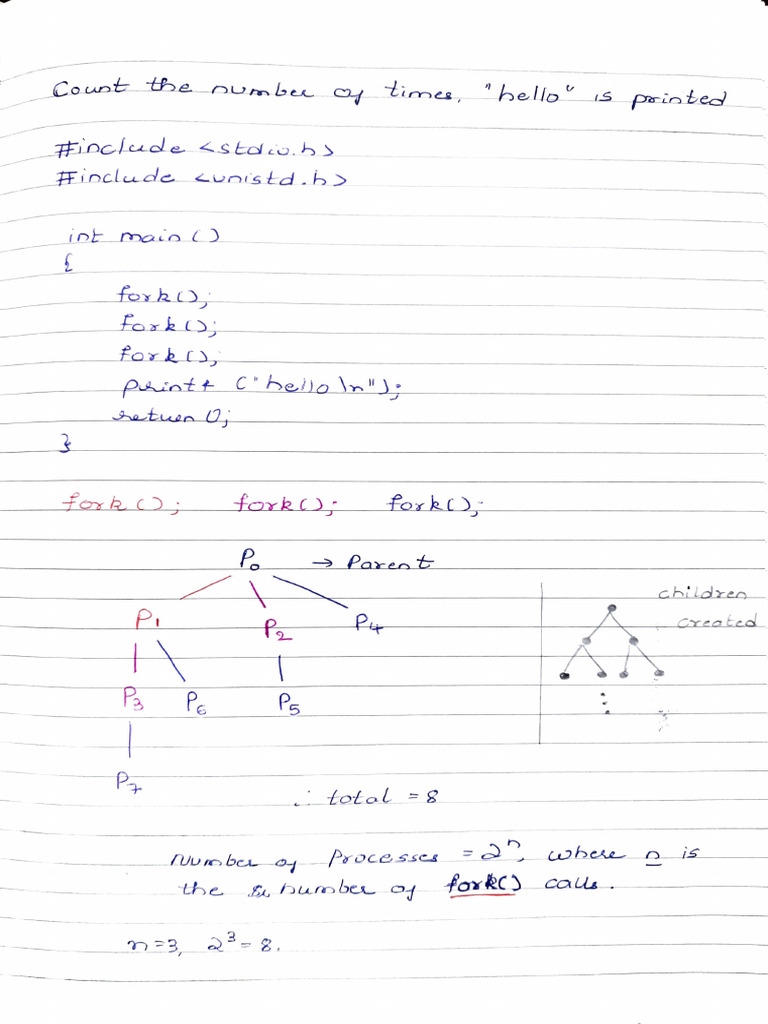 Count the number of times, "hello" is printed
#include <stdio.h>
#include <unistd.h>
int main()
{
fork();
fork();
fork();
printf ("hello \n");
return 0;
}
fork(); fork(); fork();
P0 → Parent
P1 P2 P4
P3 P6 P5
P7
children
created
∴ total = 8
Number of Processes = 2^n, where n is
the number of fork() calls.
n=3, 2^3 = 8.